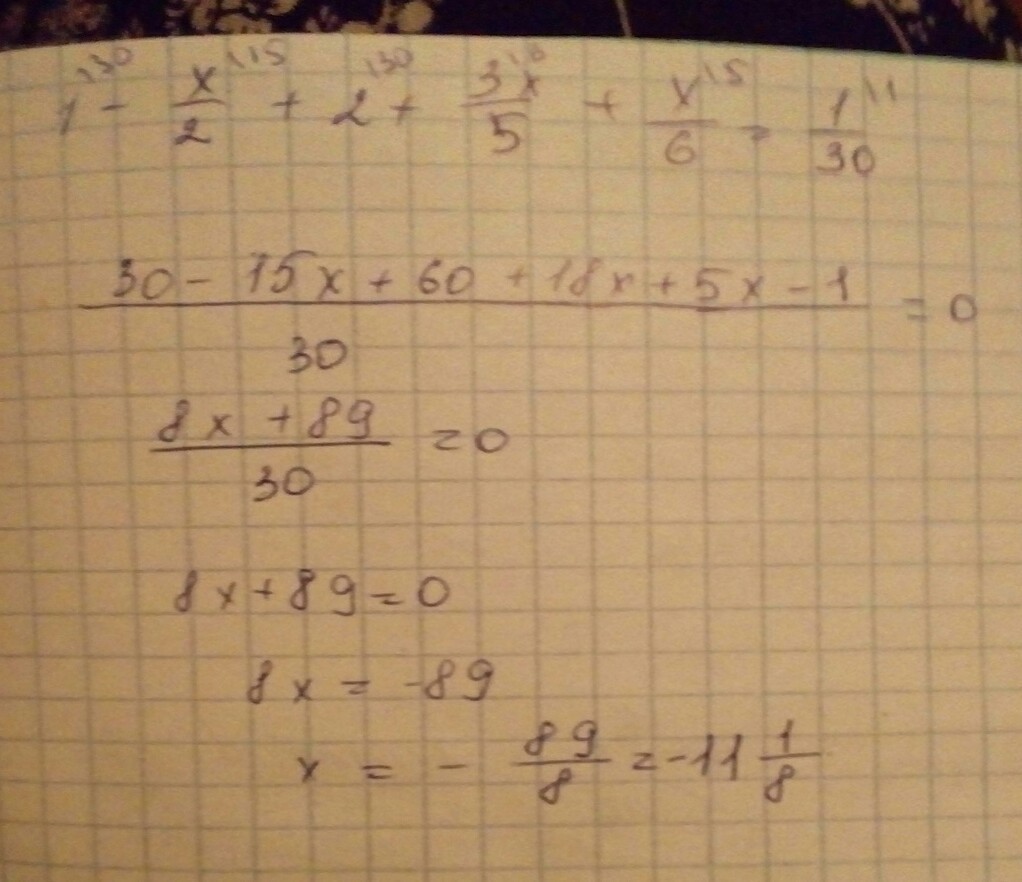 1\30 - x/2\15 + 2\30 + 3x/5\6 + x/6\5 = 1/30\1
30 - 15x + 60 + 18x + 5x - 1 / 30 = 0
8x + 89 / 30 = 0
8x + 89 = 0
8x = -89
x = - 89/8 = -11 1/8